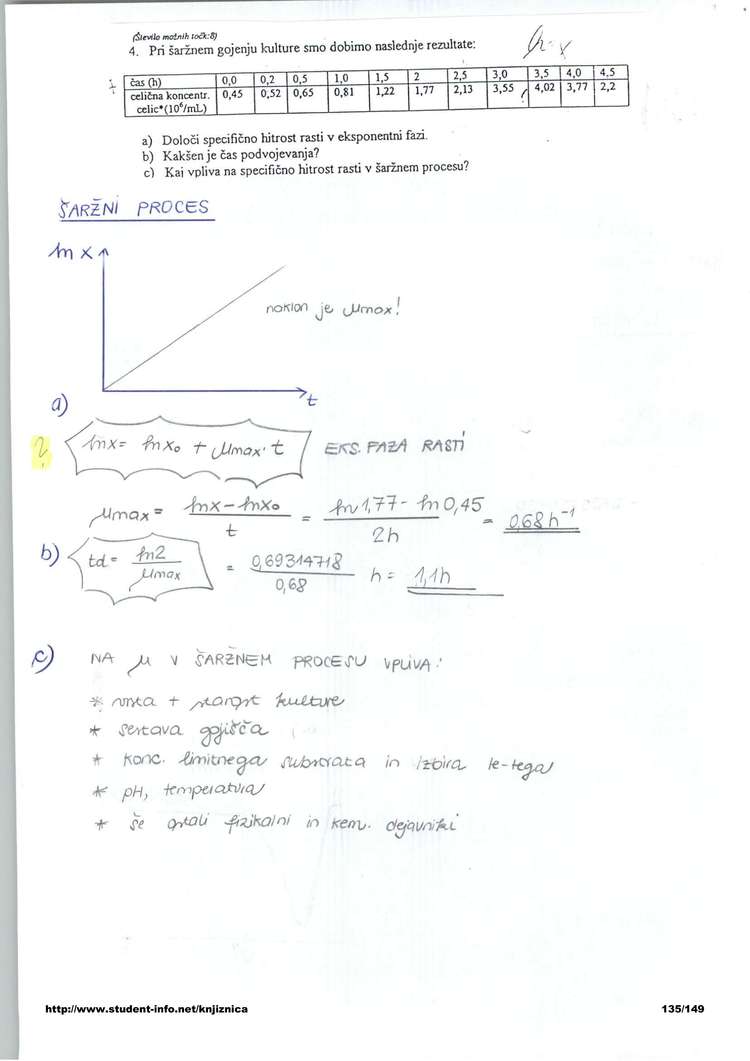 (Število možnih točk:8)
4. Pri šaržnem gojenju kulture smo dobimo naslednje rezultate:
čas (h) 0,0 0,2 0,5 1,0 1,5 2 2,5 3,0 3,5 4,0 4,5
celična koncentr. 0,45 0,52 0,65 0,81 1,22 1,77 2,13 3,55 4,02 3,77 2,2
celic*(10⁶/mL)
a) Določi specifično hitrost rasti v eksponentni fazi.
b) Kakšen je čas podvojevanja?
c) Kaj vpliva na specifično hitrost rasti v šaržnem procesu?
ŠARŽNI PROCES
ln x
naklon je μmax!
t
a)
? lnx = lnx₀ + μmax · t EKS. FAZA RASTI
μmax = (lnx - lnx₀) / t = (ln 1,77 - ln 0,45) / 2h = 0,68 h⁻¹
b) td = ln2 / μmax = 0,69314718 / 0,68 h = 1,1h
c) NA μ V ŠARŽNEM PROCESU VPLIVA:
* vrsta + starost kulture
* sestava gojišča
* konc. limitnega substrata in izbira le-tega
* pH, temperatura
* še ostali fizikalni in kem. dejavniki
http://www.student-info.net/knjiznica 135/149